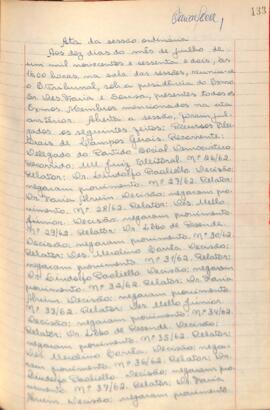 133
Ata da sessão ordinária
Aos dez dias do mês de julho de
um mil novecentos e sessenta e dois, às
16:00 horas, na sala das sessões, reuniu-se
o Tribunal, sob a presidência do Exmo
Sr. Des. Faria e Sousa, presentes todos os
Exmos. Membros mencionados na ata
anterior. Aberta a sessão, foram jul-
gados os seguintes feitos: Recursos Elei-
torais de Campos Gerais. Recorrente:
Delegado do Partido Social Democrático
Recorrido: MM. Juiz Eleitoral. Nº 26/62.
Relator: Dr. Lindolfo Paoliello Decisão:
negaram provimento. Nº 27/62. Relator:
Dr. Decisão: negaram pro-
vimento. Nº 28/62. Relator: Des. Mello
Júnior. Decisão: negaram provimento.
Nº 29/62. Relator: Dr. Libbo de Resende.
Decisão: negaram provimento. Nº 30/62.
Relator: Des. Decisão:
negaram provimento. Nº 31/62. Relator:
Dr. Lindolfo Paoliello Decisão: negaram
provimento. Nº 32/62. Relator: Dr.
Decisão: negaram provimento.
Nº 33/62. Relator: Des. Mello Júnior.
Decisão: negaram provimento. Nº 34/62.
Relator: Dr. de Resende Decisão:
negaram provimento. Nº 35/62. Relator:
Des. Decisão: nega-
ram provimento. Nº 36/62. Relator: Dr.
Lindolfo Paoliello. Decisão: negaram pro-
vimento. Nº 37/62. Relator: Dr.
Decisão: negaram provimento.